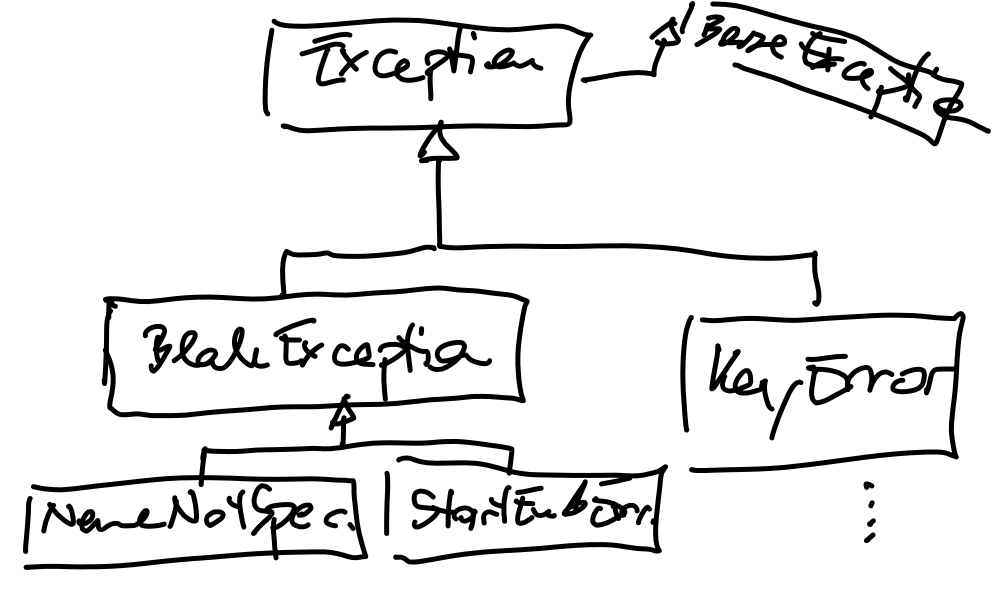 Exception
BaseExceptio
BlahException
KeyError
NameNotSpec.
StartEndErr.